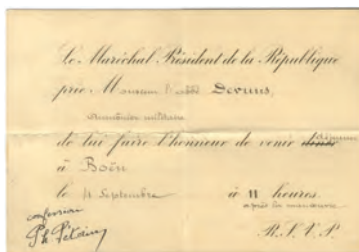 Le Maréchal Président de la République
prie Monsieur l'abbé Devuns,
aumônier militaire
de lui faire l'honneur de venir dîner
déjeuner
à Boën
le 4 Septembre à 11 heures.
après la manœuvre
R.S.V.P.
confession
Ph Pétain